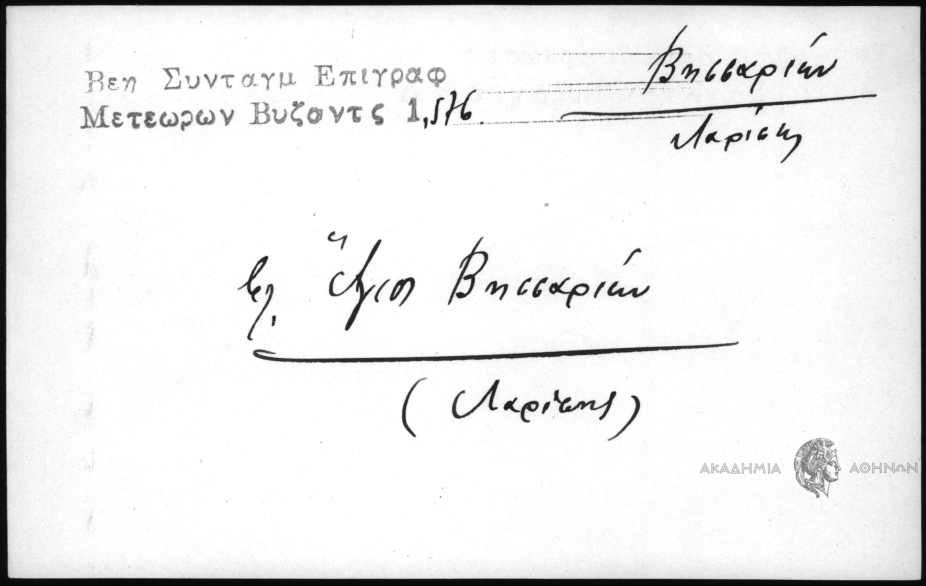 Βεη Συνταγμ Επιγραφ
Μετεωρων Βυζαντς 1,576.
Βησσαριών
Λαρίσης
Ἅγιος Βησσαριών
(Λαρίσης)
ΑΚΑΔΗΜΙΑ ΑΘΗΝΩΝ